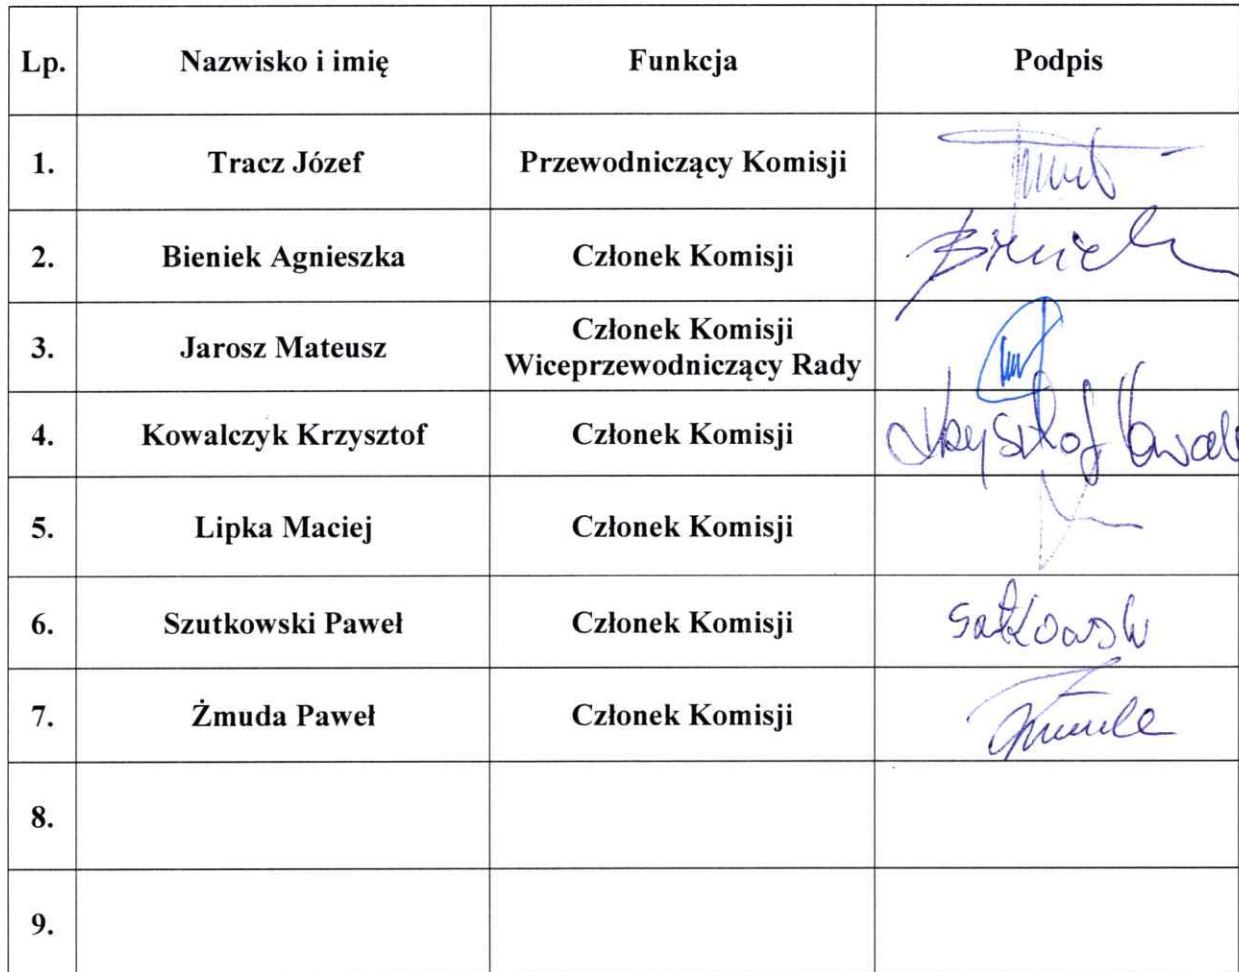 Lp. Nazwisko i imię Funkcja Podpis
1. Tracz Józef Przewodniczący Komisji
2. Bieniek Agnieszka Członek Komisji Bieniek
3. Jarosz Mateusz Członek Komisji
Wiceprzewodniczący Rady
4. Kowalczyk Krzysztof Członek Komisji Krzysztof Kowal
5. Lipka Maciej Członek Komisji
6. Szutkowski Paweł Członek Komisji
7. Żmuda Paweł Członek Komisji Żmuda
8.
9.